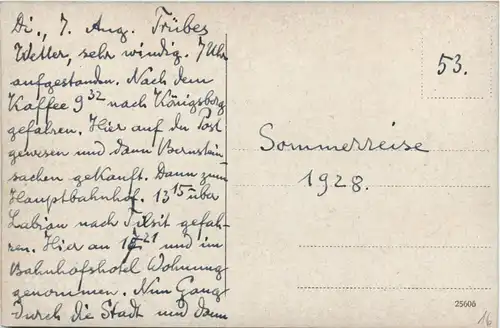 Di., 7. Aug. Trübes
Wetter, sehr windig. 7 Uhr
aufgestanden. Nach dem
Kaffee 9 32 nach Königsberg
gefahren. Hier auf der Post
gewesen und dann Bernstein-
sachen gekauft. Dann zum
Hauptbahnhof. 13 15 über
Labiau nach Tilsit gefah-
ren. Hier an 21 und im
Bahnhofshotel Wohnung
genommen. Nun Gang
durch die Stadt und dann
53.
Sommerreise
1928.
25606
16